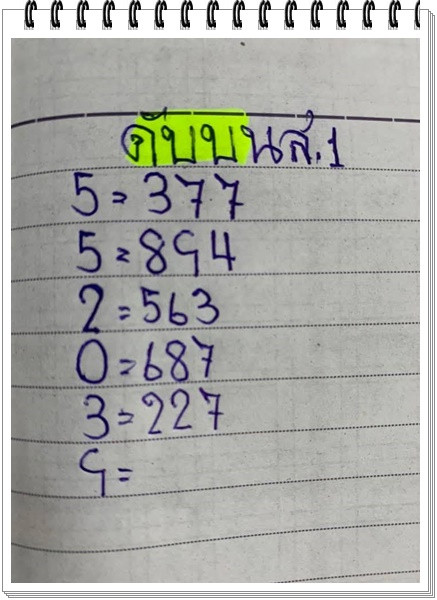 ดับบนส.1
5=377
5=894
2=563
0=687
3=227
9=